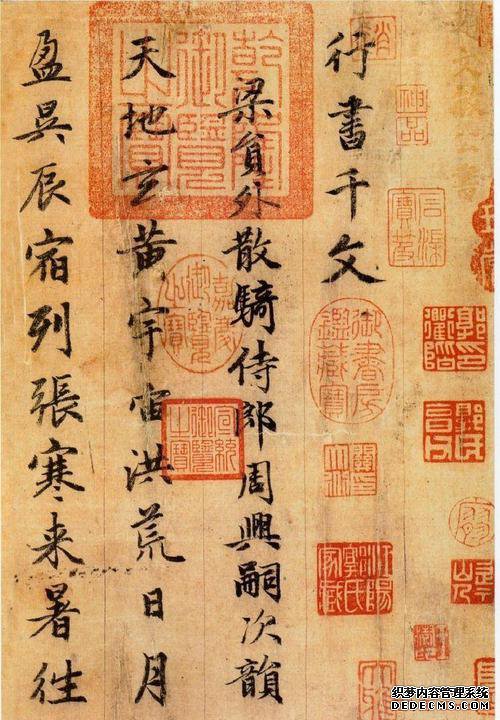 行書千文
梁貟外散騎侍郎周興嗣次韻
天地玄黄宇宙洪荒日月
盈昃辰宿列張寒来暑往
乾隆御覽之寶
嘉慶御覽之寶
宣統御覽之寶
神品
石渠寶笈
御書房鑑藏寶
织梦内容管理系统
DEDECMS.COM